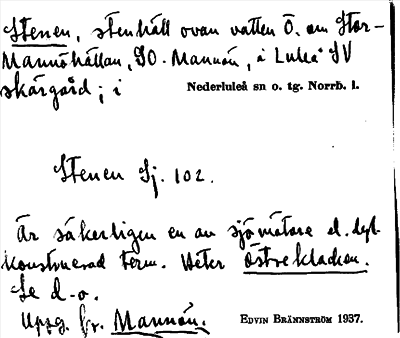 Stenen, stenhäll ovan vatten Ö. om Stor-
Mannöhällan, SO. Mannön, i Luleå SV
skärgård; i Nederluleå sn o. tg. Norrb. l.
Stenen Sj. 102.
Är säkerligen en av sjömätare el. dyl.
konstruerad term. Heter Östrekladden.
Se d-o.
Uppg. fr. Mannön. EDVIN BRÄNNSTRÖM 1937.